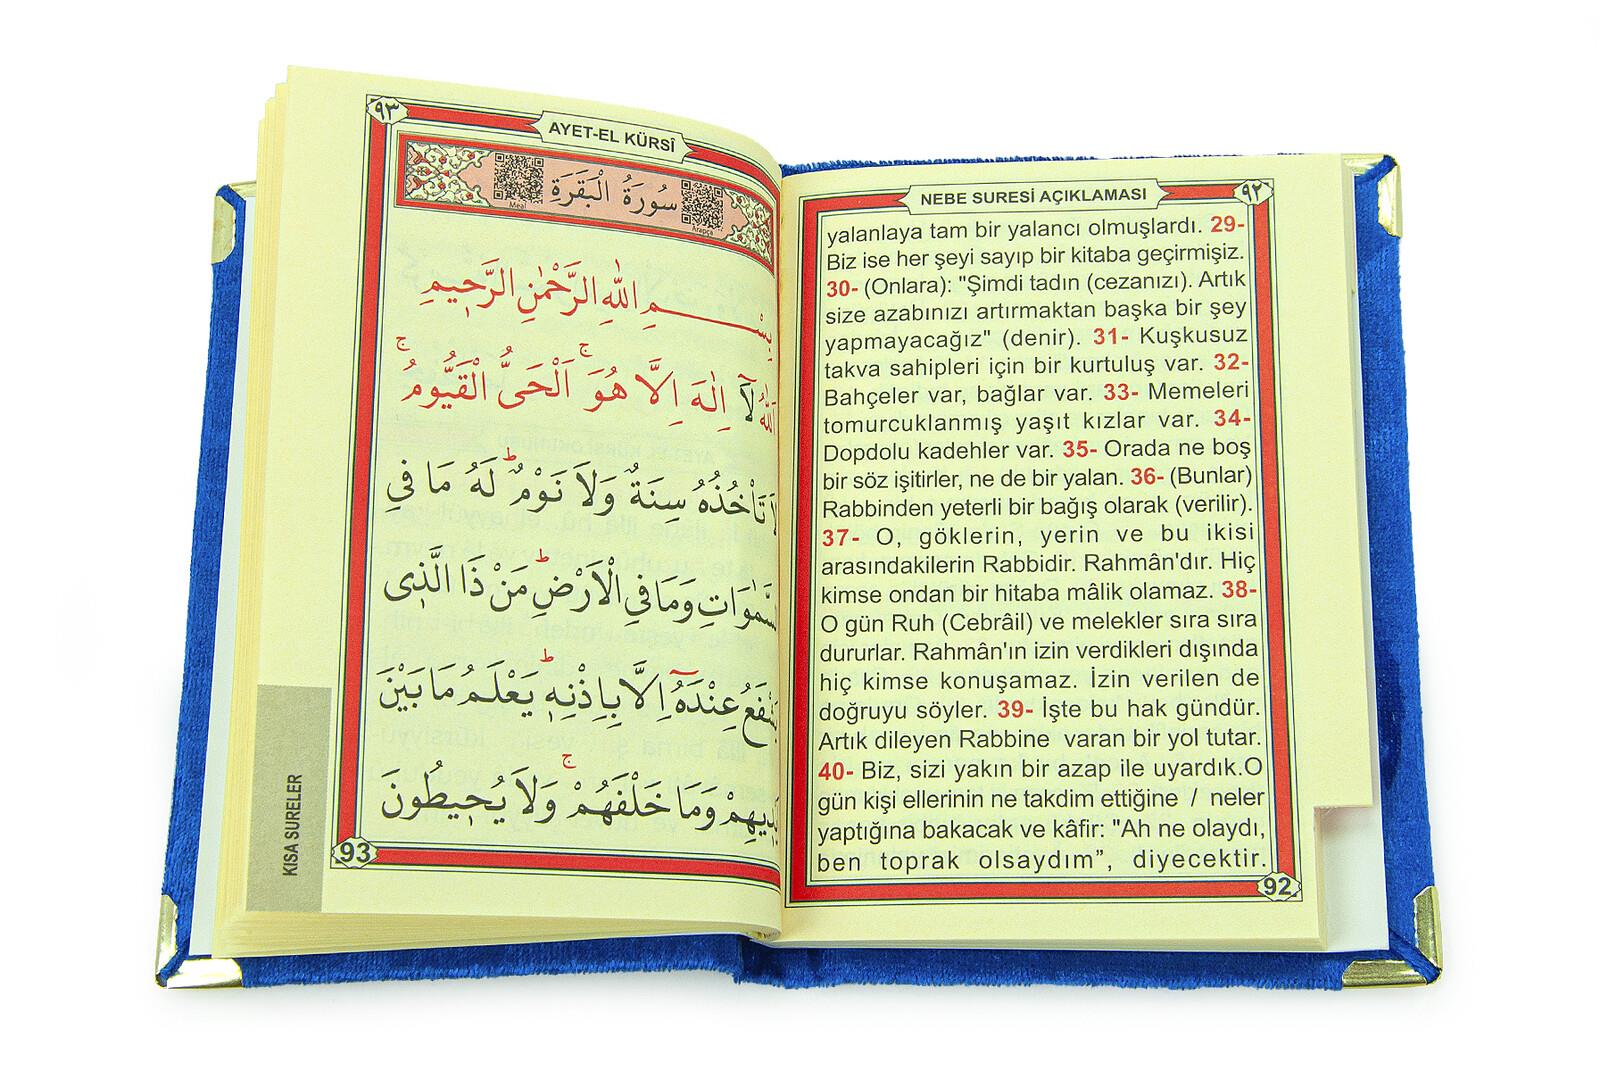 NEBE SURESİ AÇIKLAMASI
٩٢
yalanlaya tam bir yalancı olmuşlardı. 29-
Biz ise her şeyi sayıp bir kitaba geçirmişiz.
30- (Onlara): "Şimdi tadın (cezanızı). Artık
size azabınızı artırmaktan başka bir şey
yapmayacağız" (denir). 31- Kuşkusuz
takva sahipleri için bir kurtuluş var. 32-
Bahçeler var, bağlar var. 33- Memeleri
tomurcuklanmış yaşıt kızlar var. 34-
Dopdolu kadehler var. 35- Orada ne boş
bir söz işitirler, ne de bir yalan. 36- (Bunlar)
Rabbinden yeterli bir bağış olarak (verilir).
37- O, göklerin, yerin ve bu ikisi
arasındakilerin Rabbidir. Rahmân'dır. Hiç
kimse ondan bir hitaba mâlik olamaz. 38-
O gün Ruh (Cebrâil) ve melekler sıra sıra
dururlar. Rahmân'ın izin verdikleri dışında
hiç kimse konuşamaz. İzin verilen de
doğruyu söyler. 39- İşte bu hak gündür.
Artık dileyen Rabbine varan bir yol tutar.
40- Biz, sizi yakın bir azap ile uyardık.O
gün kişi ellerinin ne takdim ettiğine / neler
yaptığına bakacak ve kâfir: "Ah ne olaydı,
ben toprak olsaydım”, diyecektir.
92
٩٣
AYET-EL KÜRSÎ
سُورَةُ الْبَقَرَةِ
Meal
Arapça
بِسْمِ اللّٰهِ الرَّحْمٰنِ الرَّحٖيمِ
لَٓا اِلٰهَ اِلَّا هُوَۚ اَلْحَىُّ الْقَيُّومُۚ
تَأْخُذُهُ سِنَةٌ وَلَا نَوْمٌؕ لَهُ مَا فِي
السَّمٰوَاتِ وَمَا فِي الْاَرْضِؕ مَنْ ذَا الَّذٖى
يَشْفَعُ عِنْدَهُٓ اِلَّا بِاِذْنِهٖؕ يَعْلَمُ مَا بَيْنَ
وَمَا خَلْفَهُمْۚ وَلَا يُحٖيطُونَ
93
KISA SURELER